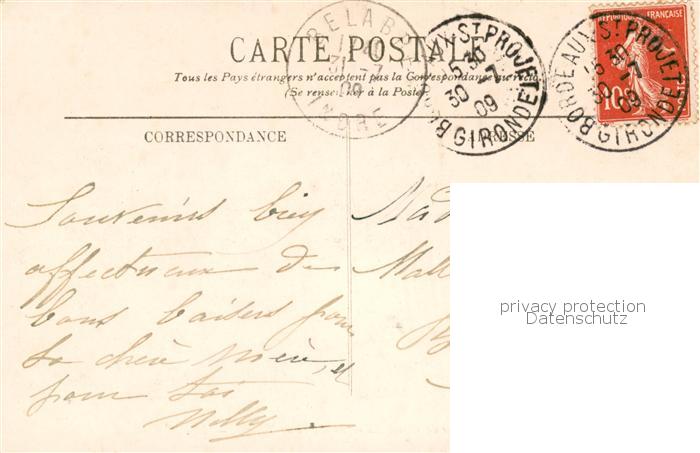 CARTE POSTALE
Tous les Pays étrangers n'acceptent pas la Correspondance au recto
(Se renseigner à la Poste)
BELAB
31 -7
09
INDRE
BORDEAUX ST PROJET
15 30
30 -7
09
GIRONDE
REPUBLIQUE FRANÇAISE
10
POSTES
BORDEAUX ST PROJET
30 -7
09
GIRONDE
CORRESPONDANCE
ADRESSE
Souvenirs bien
affectueux des
bons baisers pour
ta chère mère, et
pour toi
Willy
Mad
Mall
privacy protection
Datenschutz